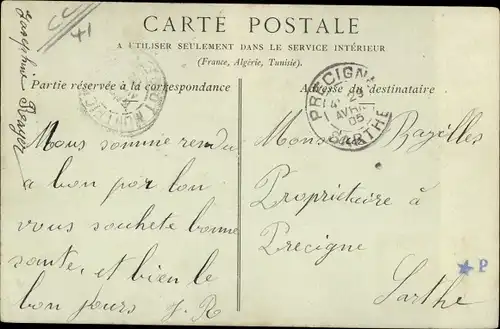 CARTE POSTALE
A UTILISER SEULEMENT DANS LE SERVICE INTÉRIEUR
(France, Algérie, Tunisie).
Partie réservée à la correspondance
Adresse du destinataire
Josephine Renger
41
PRECIGNÉ
23
AVRIL
05
SARTHE
Nous somme rendu
a bon por lon
vous souhete bonne
sante, et bien le
bon jours J. R
Monsieur Bazilles
Propriétaire à
Precigne
Sarthe
★ P